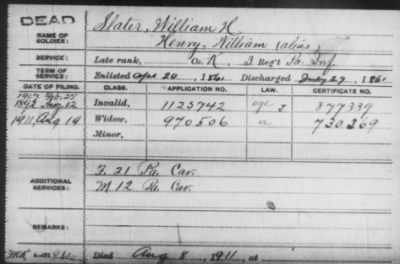 DEAD
NAME OF SOLDIER: Slater, William H.
Henry, William (alias)
SERVICE: Late rank, Co. K, 3 Reg't Pa. Inf.
TERM OF SERVICE: Enlisted Apr 20, 1861 Discharged July 29, 1861
DATE OF FILING. CLASS. APPLICATION NO. LAW. CERTIFICATE NO.
1907 25
1892 Aug 12 Invalid, 1123742 age 877339
1911, Aug 19 Widow, 970506 a 730369
Minor,
ADDITIONAL SERVICES: F. 21 Pa. Cav.
M 12 Pa. Cav.
REMARKS:
Died Aug 8, 1911, at